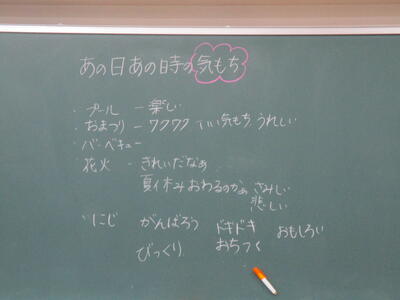 あの日あの時の気もち
・プール － 楽しい
・おまつり － ワクワク いい気もち うれしい
・バーベキュー
・花火 － きれいだなぁ
夏休みおわるのかぁ さみしい
悲しい
・にじ がんばろう ドキドキ おもしろい
びっくり おちつく